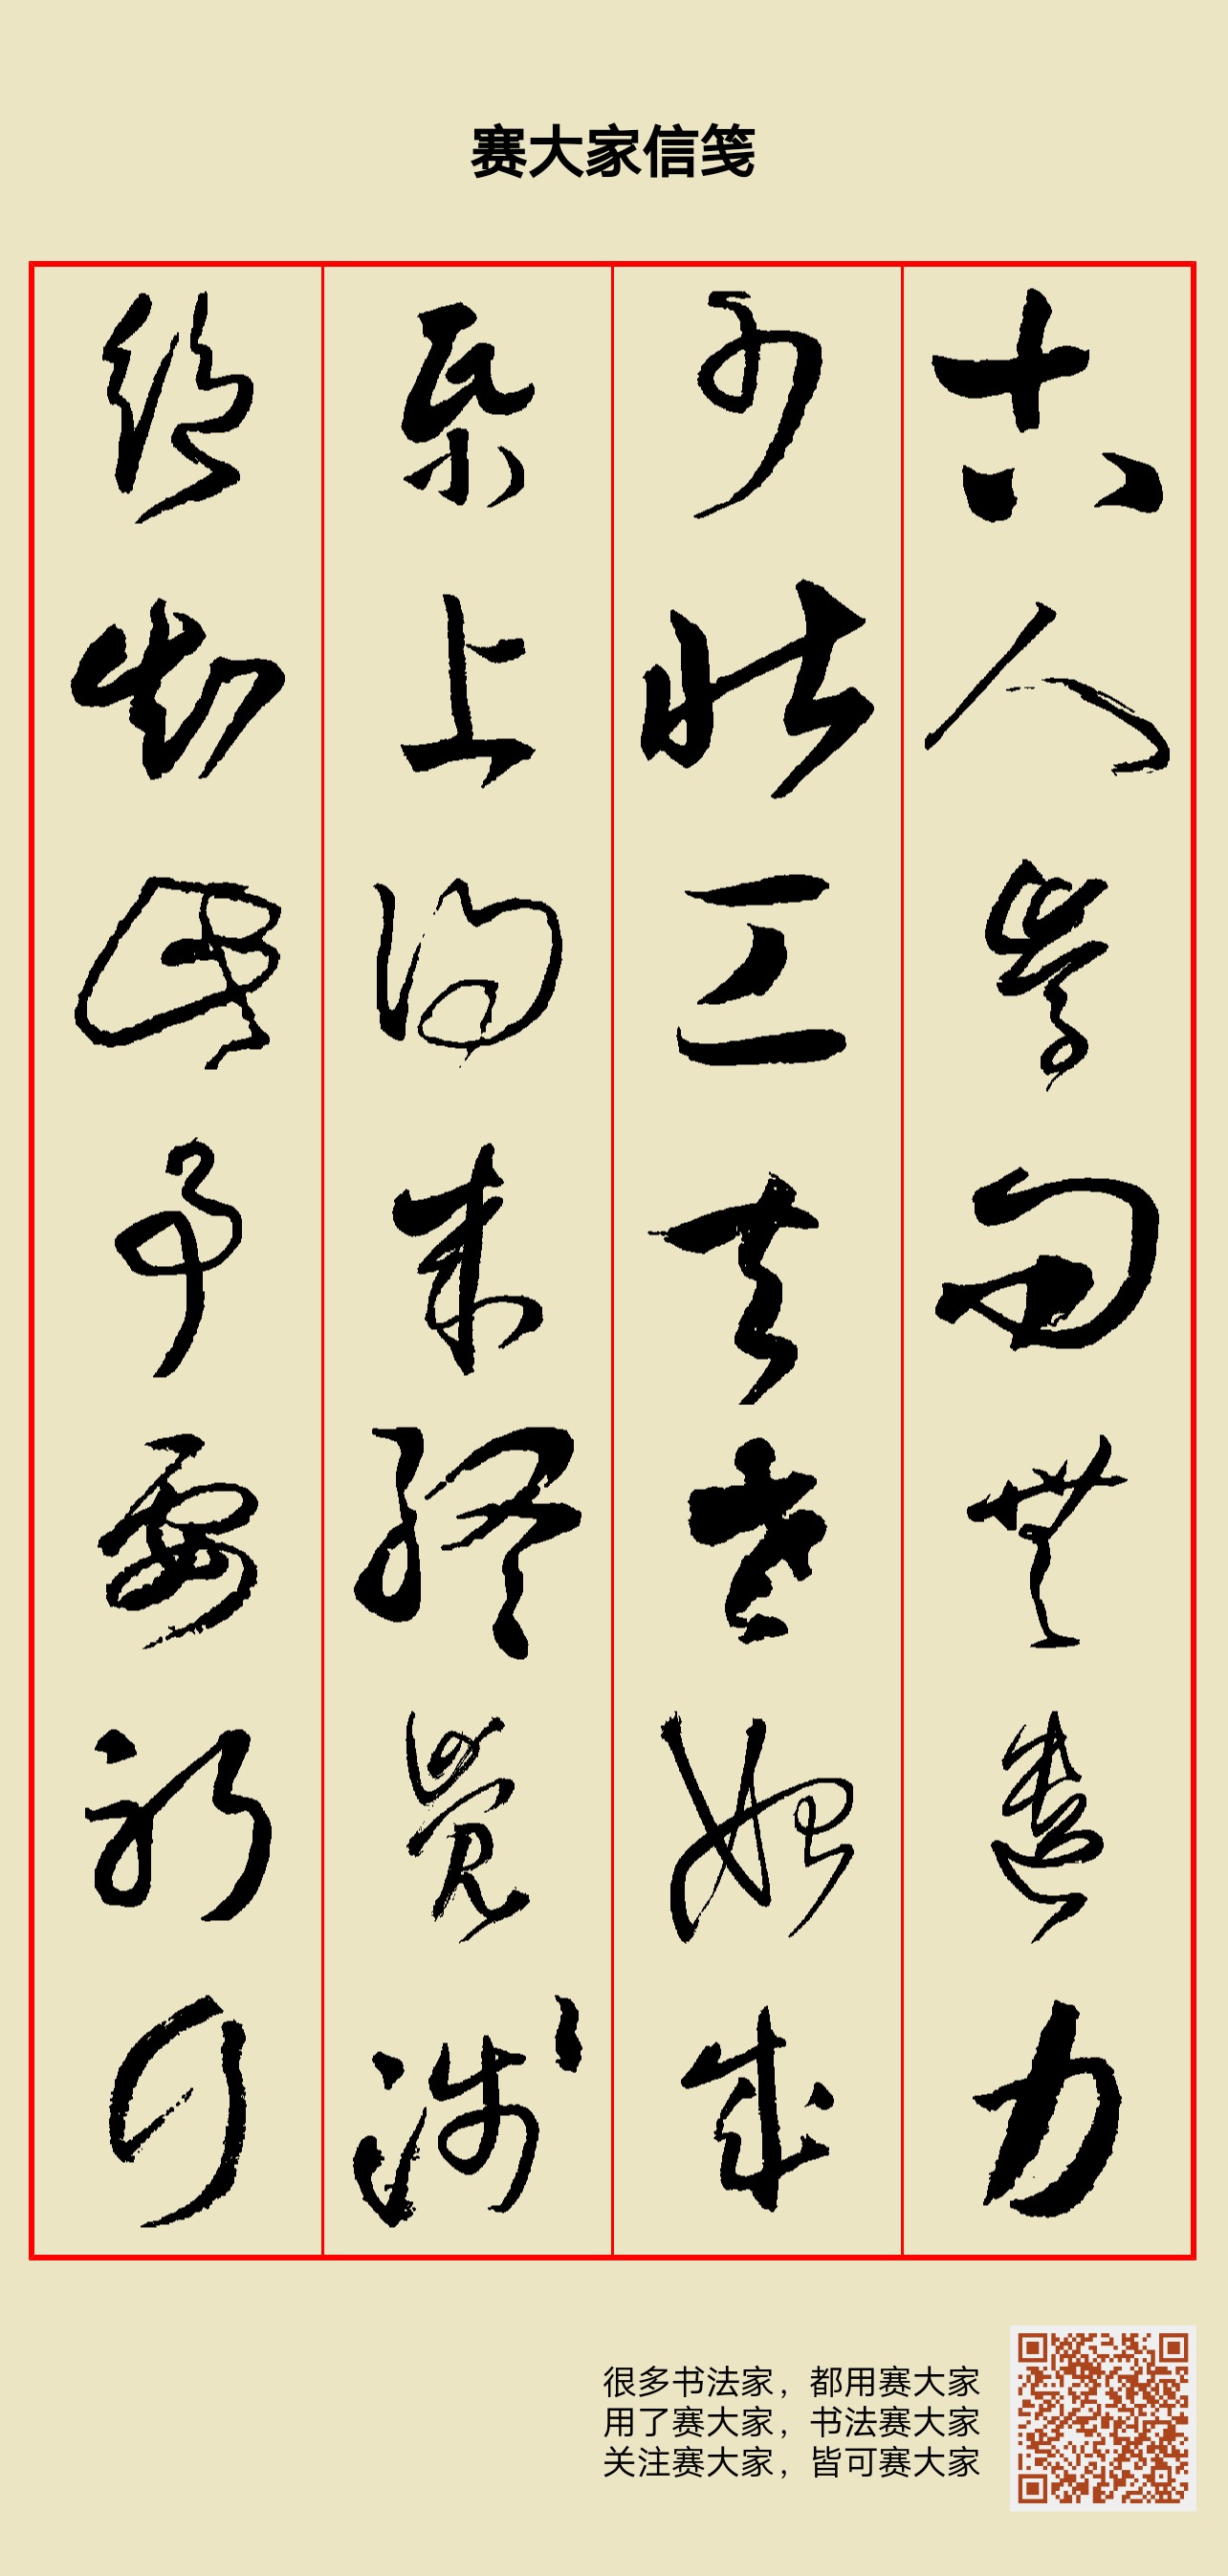 赛大家信笺
古人學问無遺力
少壯工夫老始成
紙上得来終覺淺
絕知此事要躬行
很多书法家，都用赛大家
用了赛大家，书法赛大家
关注赛大家，皆可赛大家